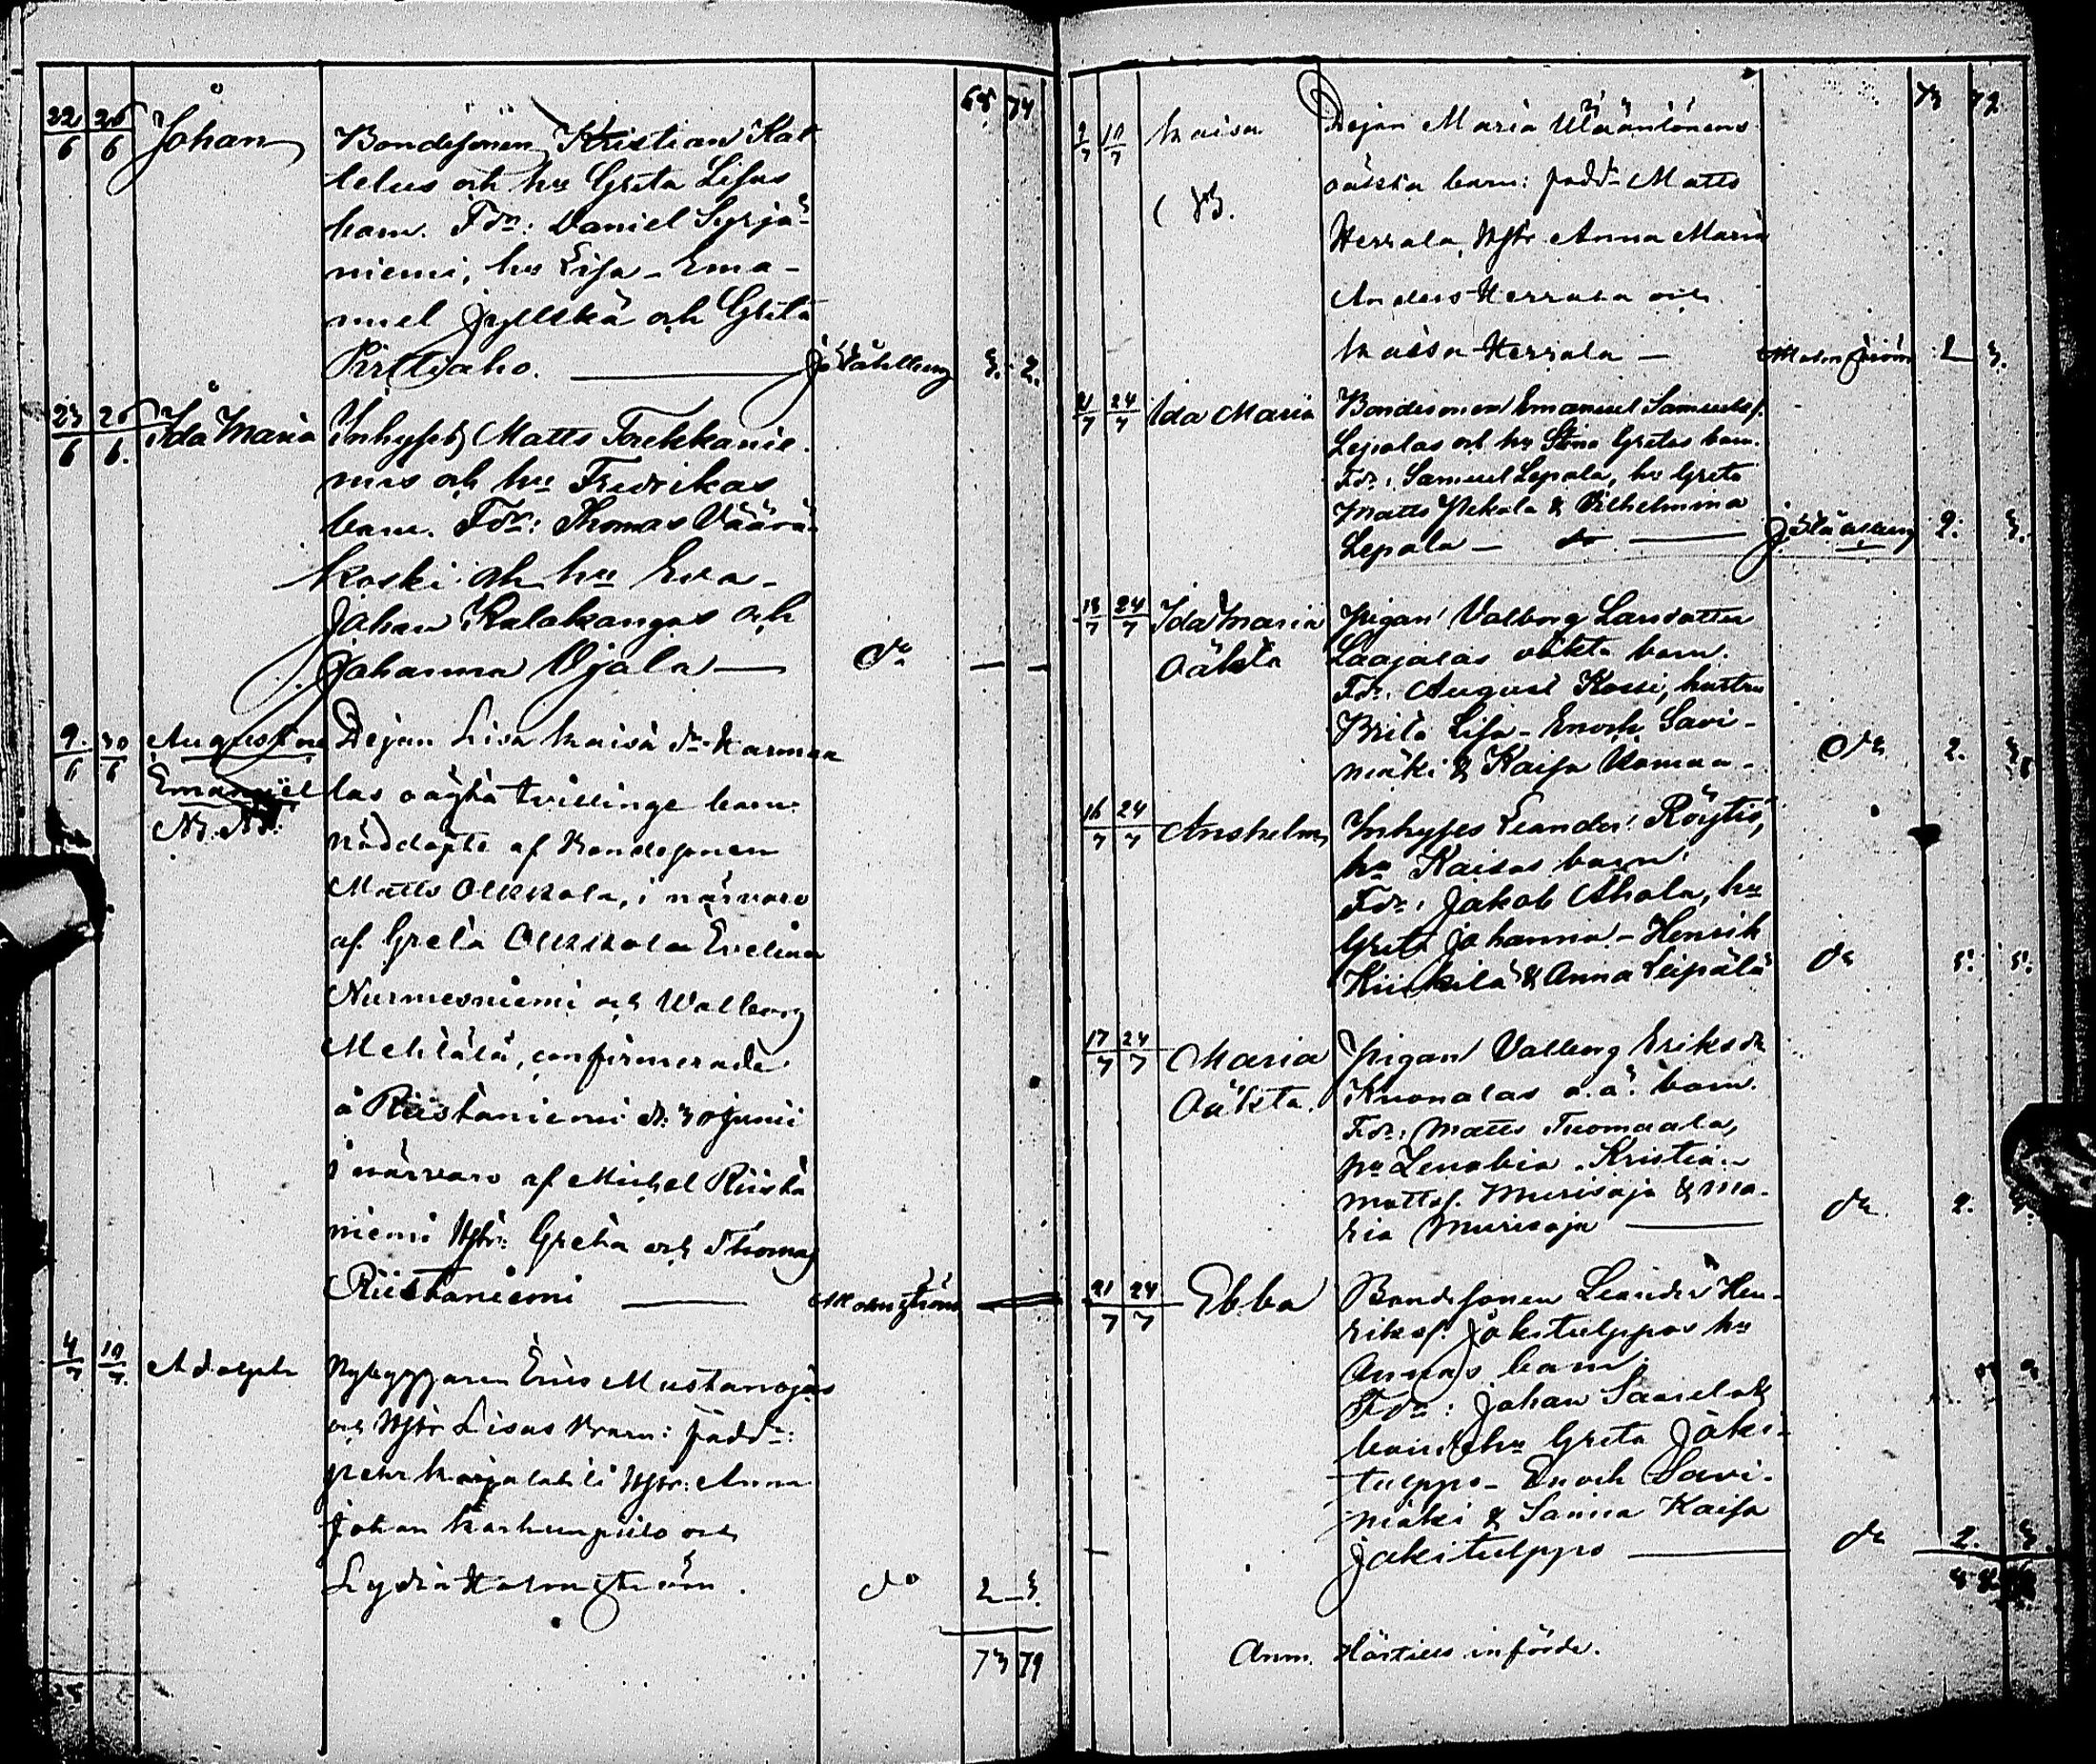 68 74
22/6 26/6 Johan Bondesonen Kristian Kat
telus och hu Greta Lisas
barn. Fdr: Daniel Syrjä-
niemi, hu Lisa - Ema-
nuel Jyllskä och Greta
Pirttiaho. — J. Ståhlberg 3. 2.
23/6 26/6. Ida Maria Inhyses Matts Torekkanie
mis och hu Fredrikas
barn. Fdr: Thomas Väärä-
koski och hu Eva -
Johan Kalakangas och
Johanna Ojala — do — —
9/6 30/6 Augustine Dejan Lisa Maisa dr Harma
Emanuel las oägta tvillinge barn
N. N. nöddöpte af Bondesonen
Matts Olkkola, i närvaro
af Greta Olkkola Evelina
Nurmesniemi och Walborg
Mehtälä, confirmerade
å Riistaniemi d. 30 junii
i närvaro af Michel Riista
niemi Hstr: Greta och Thomas
Riistaniemi — Malmström
4/7 10/7 Adolph Nybyggaren Erics Mustanojas
och Hstr Lisas Barn: fadd:
Pehr Karjalahti Hstr: Anna
Johan Karhunpuro och
Lydia Malmström. do 2 3.
73 79
73 72
2/7 10/7 Maisa Dejan Maria Ulääntönens
oäkta barn: fadd: Matts
Herrala, Hstr Anna Maria
Anders Herrala och
Maisa Herrala — Malmström 2 3.
21/7 24/7 Ida Maria Bondesonen Emanuel Samuelsf.
Lepolas och hu Stina Gretas barn.
Fdr: Samuel Lepola, hu Greta
Matts Pekola & Vilhelmina
Lepola — J. Ståhlberg 2. 3.
18/7 24/7 Ida Maria Pigan Valborg Larsdotter
Oäkta Laajalas oäkta barn.
Fdr: August Kossi, hustru
Brita Lisa - Enoch Savi-
mäki & Kaisa Uomaa - do 2. 3.
16/7 24/7 Anshelm Inhyses Leander Röytiö,
hu Kaisas barn.
Fdr: Jakob Ahola, hu
Greta Johanna - Henrik
Kiiskilä & Anna Leipälä do 5. 5.
17/7 24/7 Maria Pigan Valborg Eriksdr
Oäkta. Kuonalas o.ä. barn.
Fdr: Matts Tuomaala,
hu Zenobia - Kristian
Mattsf. Murisoja & Ma-
ria Murisoja — do. 2.
21/7 24/7 Ebba Bondesonen Leander Hen-
riksf. Jäkitulppos hu
Annas barn.
Fdr: Johan
hu Greta Jäki-
tulppo - Enoch Savi-
mäki & Sanna Kaisa
Jakitulppo — do 2. 3.
Anm. Härtills införde.